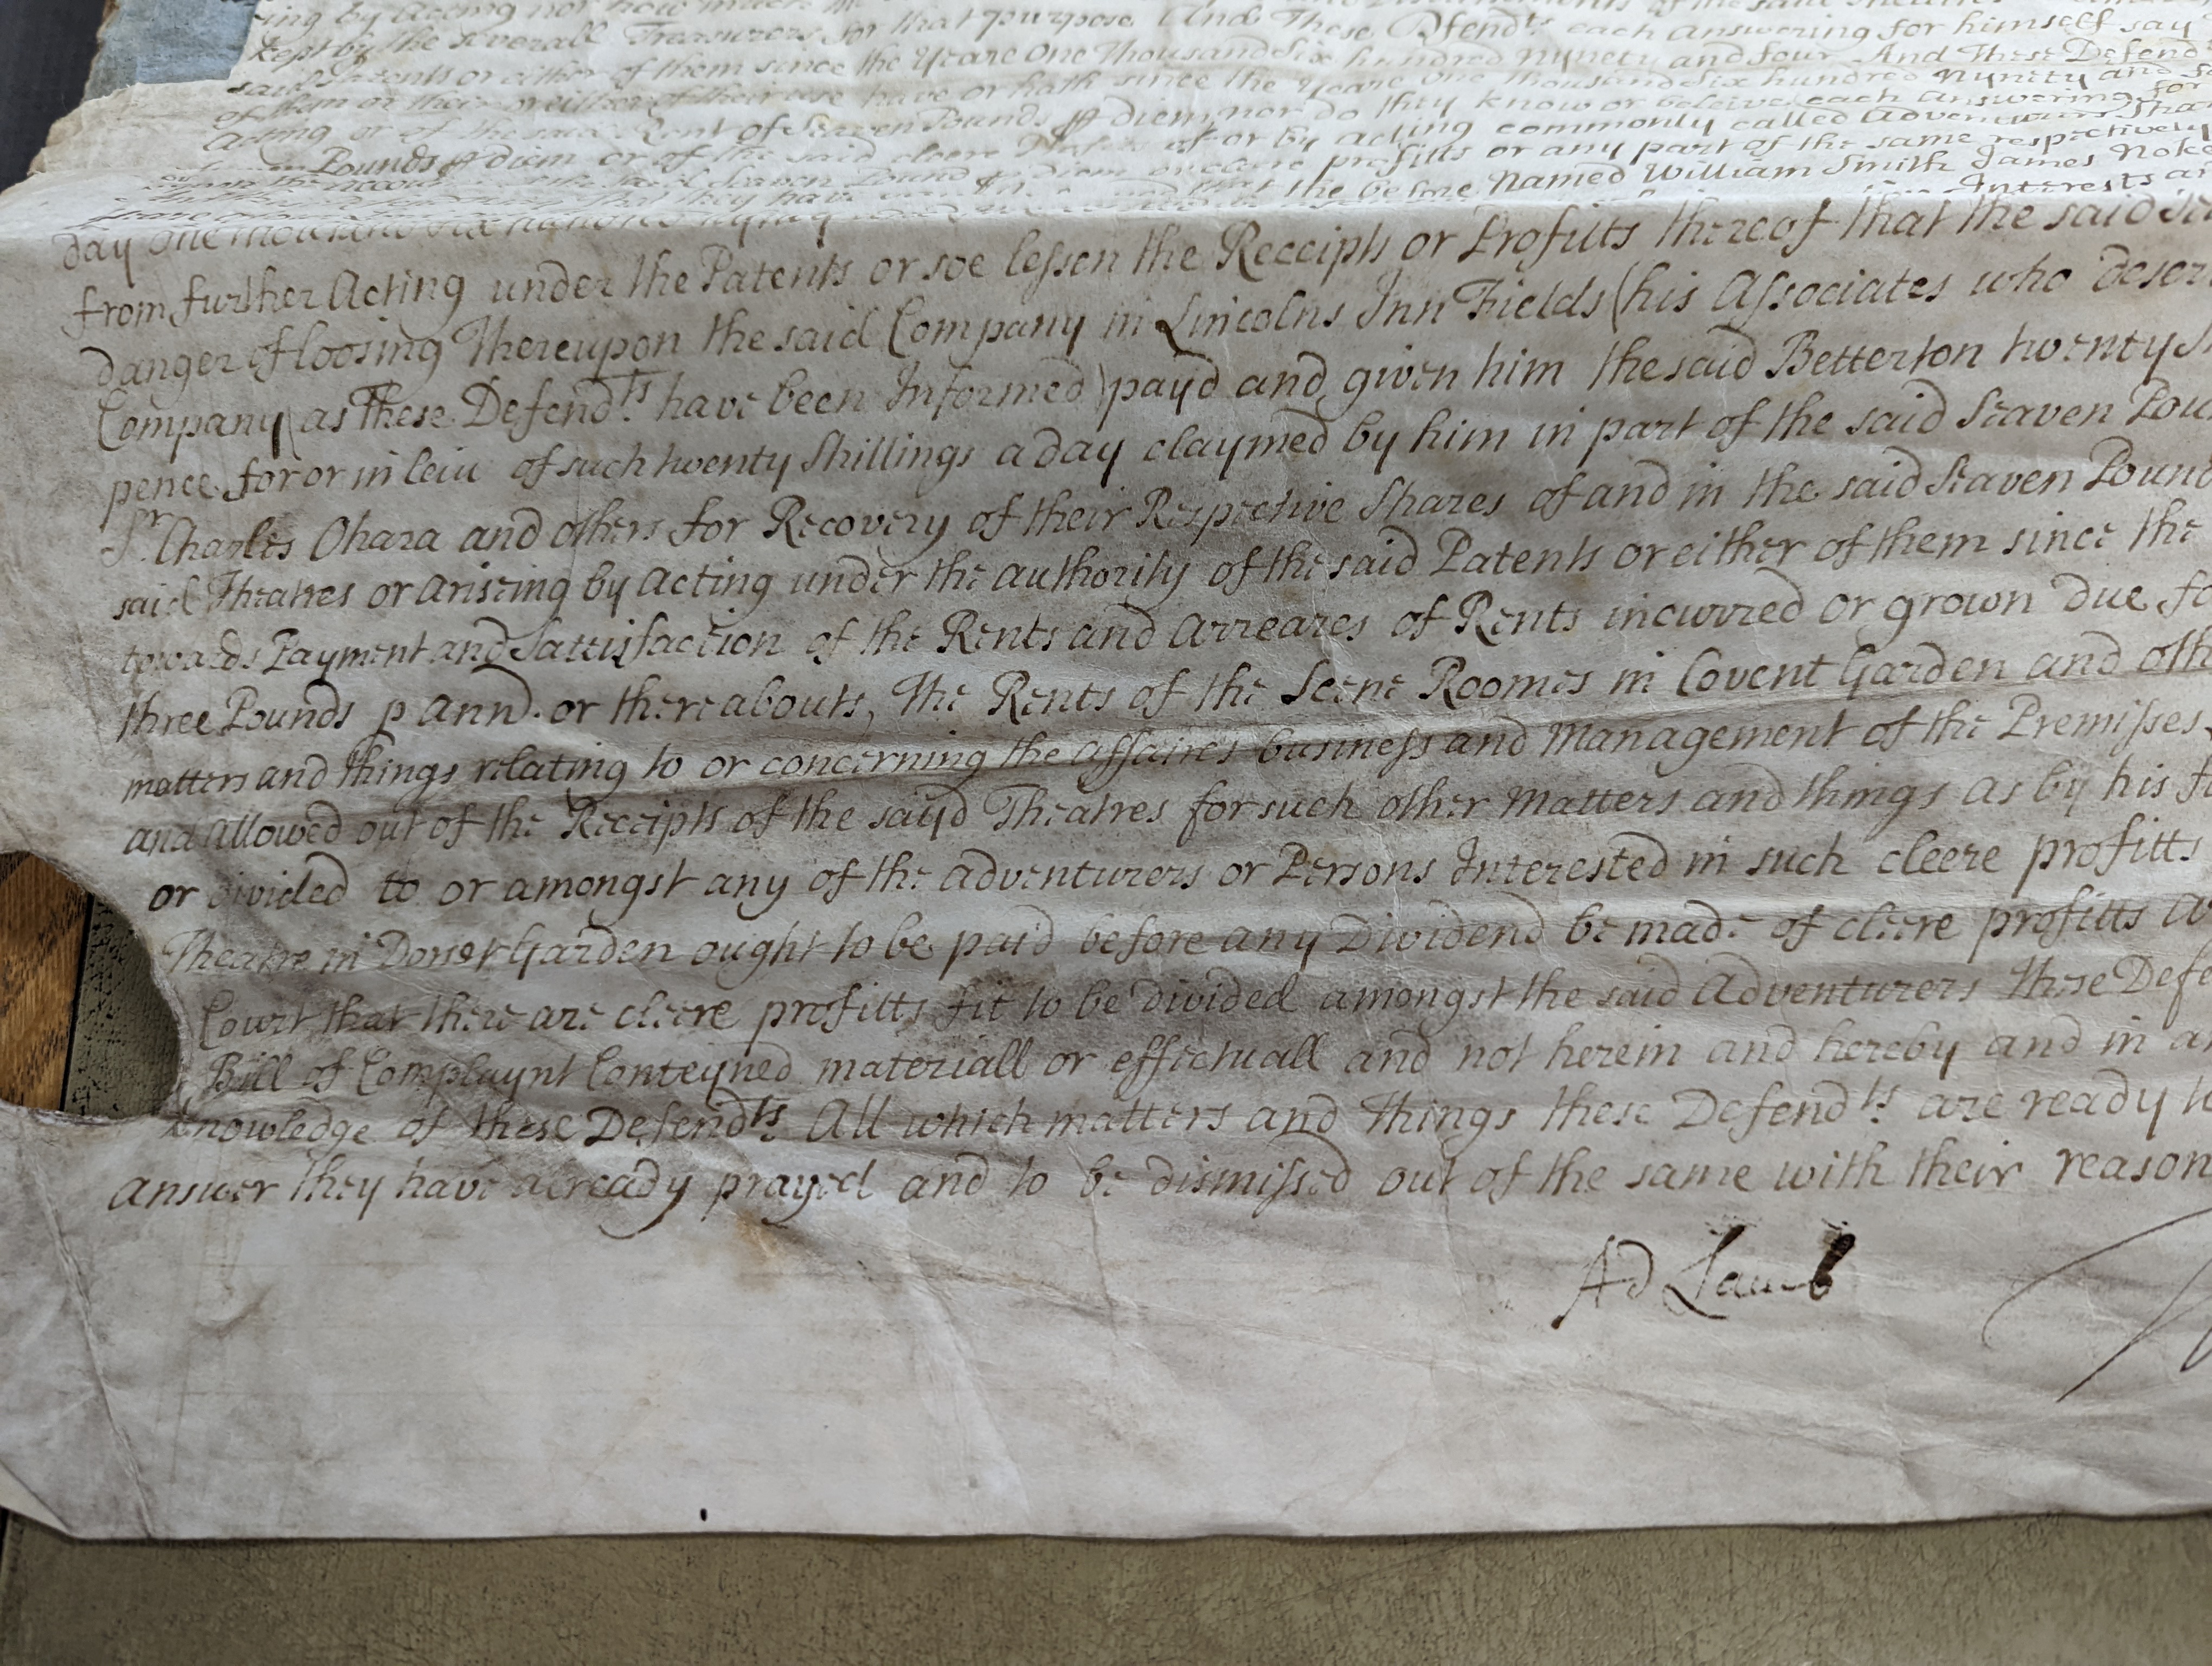 kept by the severall Treasurers for that purpose And These Defend.ts each answering for himself say
said Patents or either of them since the Yeare One Thousand Six hundred Nynety and four And These Defend
have or hath since the Yeare One Thousand Six hundred Nynety and
Acting or of the said Rent of Seaven Pounds p diem nor do they know or beleive each answering for
Pounds p diem or of the said cleere of or by acting commonly called Adventurers Shar
profitts or any part of the same respectively
that the before Named William Smith James Noke
day One thousand six hundred Nynty Interests
from further Acting under the Patents or soe lessen the Receipts or Profitts thereof that the said
danger of loosing Thereupon the said Company in Lincolns Inn Fields (his Associates who deser
Company (as These Defend.ts have been Informed) payd and given him the said Betterton twenty
pence for or in leiu of such twenty shillings a day claymed by him in part of the said Seaven Pou
S.r Charles Ohara and others for Recovery of their Respective Shares of and in the said Seaven Pound
said Theatres or ariseing by acting under the authority of the said Patents or either of them since the
towards Payment and Sattisfaction of the Rents and arreares of Rents incurred or grown due fo
three Pounds p Ann. or thereabouts, The Rents of the Scene Roomes in Covent Garden and oth
matters and things relating to or concerning the affaires business and Management of the Premisses
and allowed out of the Receipts of the sayd Theatres for such other Matters and things as by his
or divided to or amongst any of the adventurers or Persons Interested in such cleere profitts
Theatre in Dorset Garden ought to be paid before any Dividend be made of cleere profitts
Court that there are cleere profitts fit to be divided amongst the said Adventurers these Defe
Bill of Complaynt Conteyned materiall or effectuall and not herein and hereby and in
knowledge of these Defend.ts All which matters and things these Defend.ts are ready
answer they have already prayed and to be dismissed out of the same with their reason
Ad Lamb